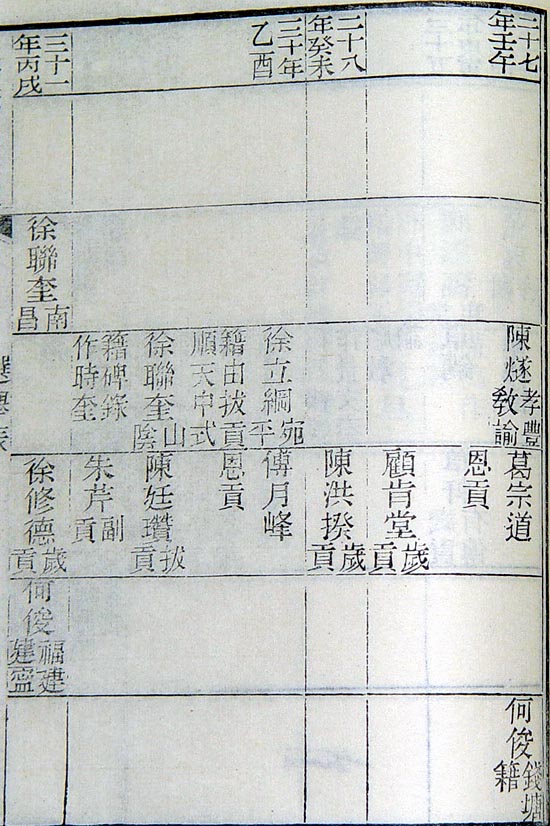 二十七
年壬午
陳燧孝豐
教諭
葛宗道
恩貢
何俊錢塘
籍
顧肯堂歲
貢
二十八
年癸未
陳洪揆歲
貢
三十年
乙酉
徐立綱宛
平
籍由拔貢
順天中式
傅月峰
恩貢
徐聯奎山
陰
籍碑錄
作時奎
陳廷瓚拔
貢
朱芹副
貢
三十一
年丙戌
徐聯奎南
昌
徐修德歲
貢
何俊福建
建寧